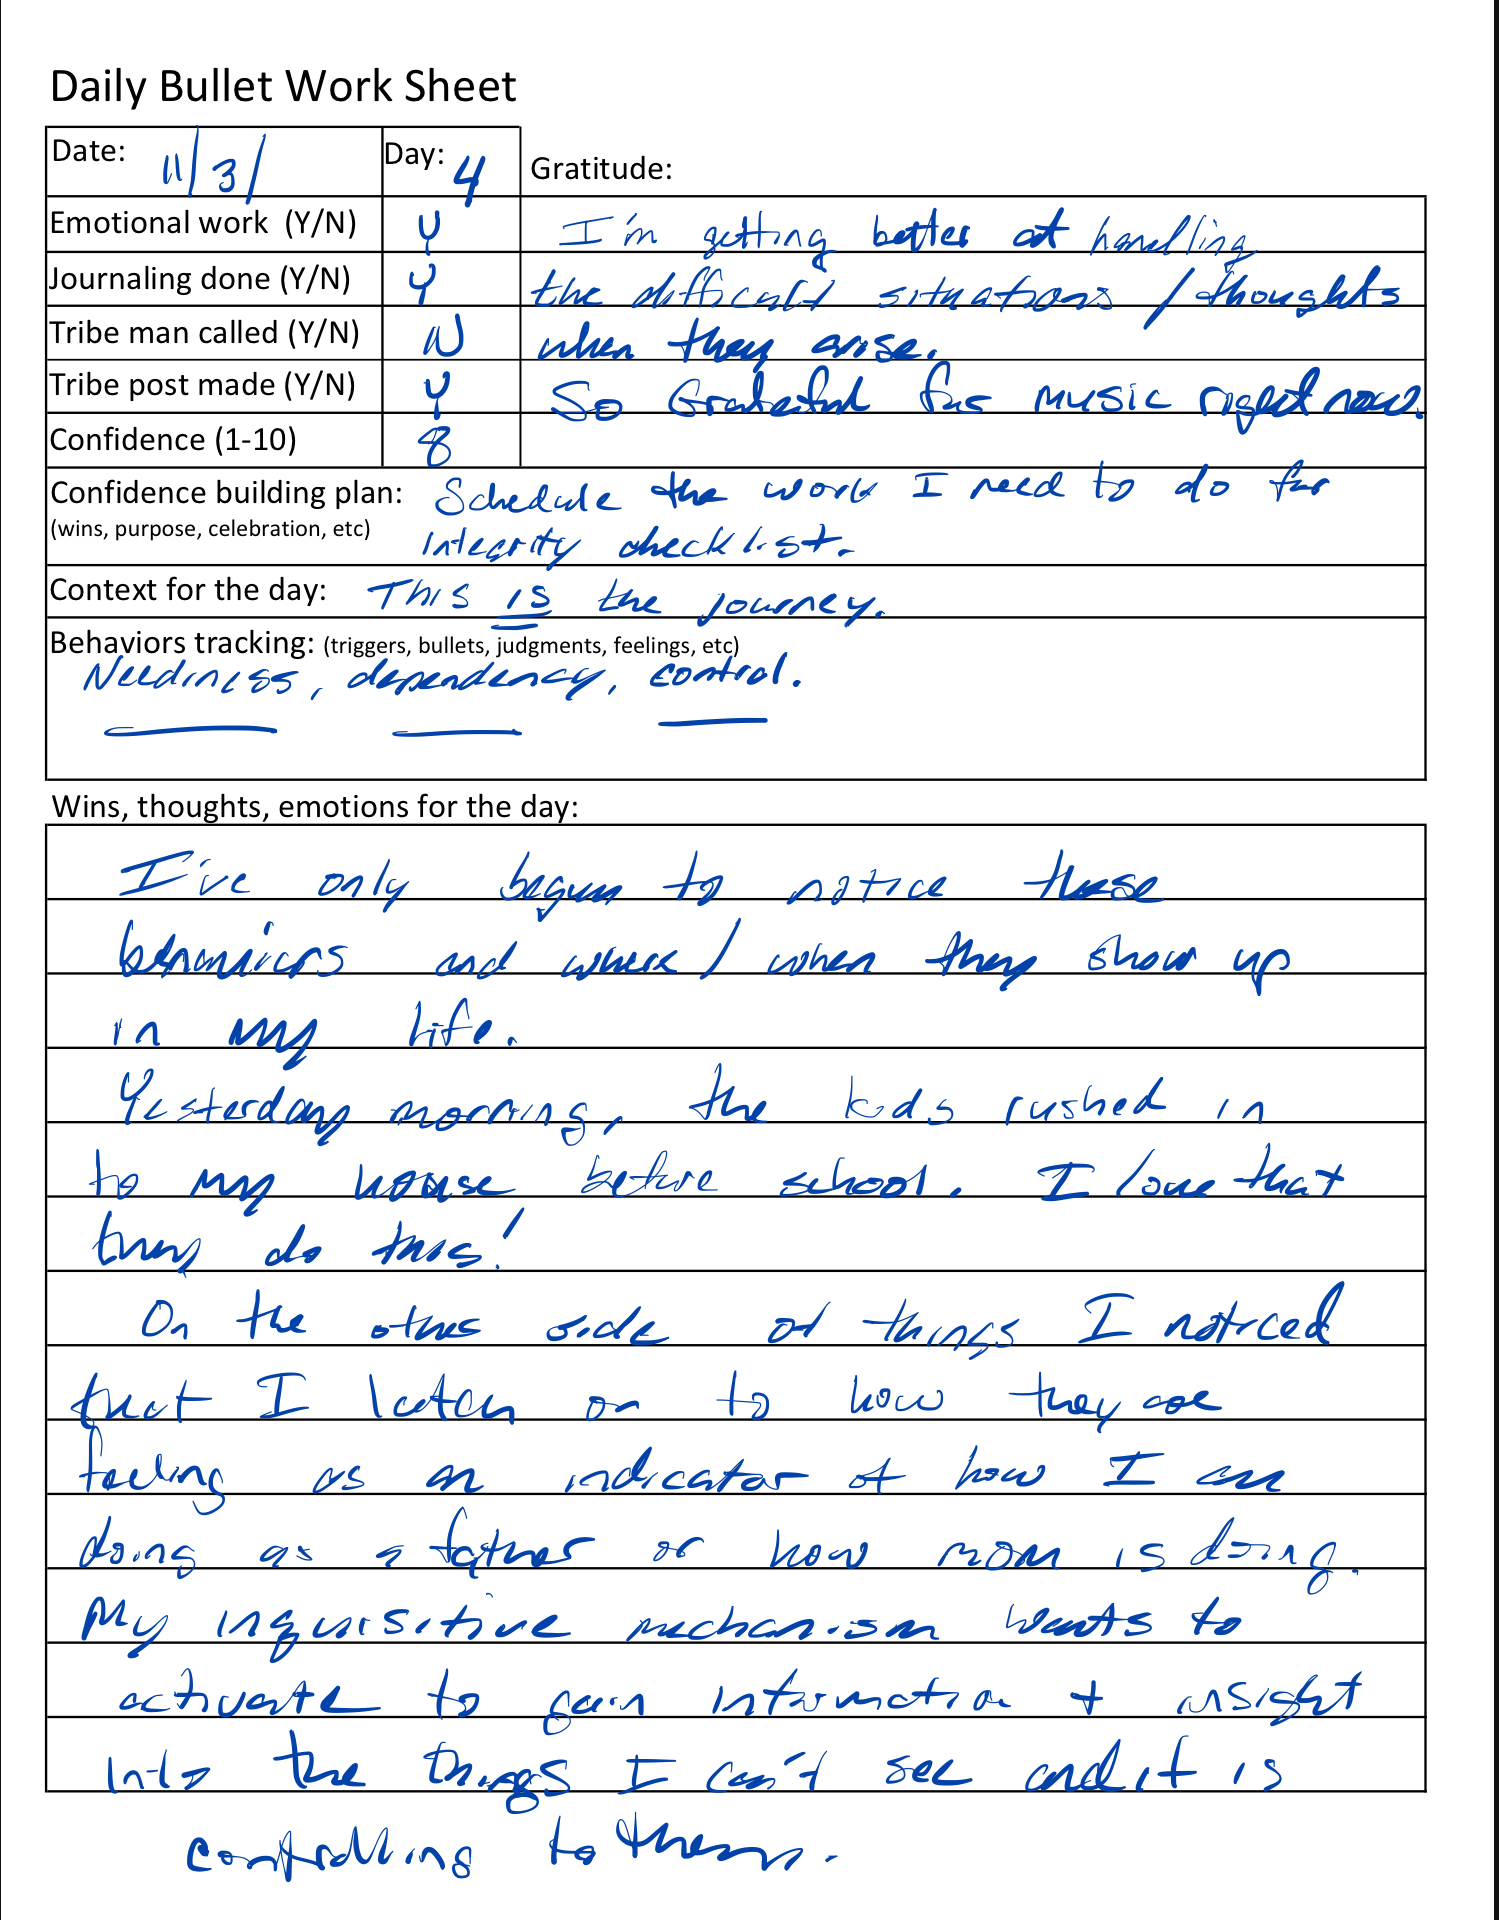 Daily Bullet Work Sheet
Date: 11/3/ Day: 4 Gratitude:
Emotional work (Y/N) Y I'm getting better at handling
Journaling done (Y/N) Y the difficult situations / thoughts
Tribe man called (Y/N) N when they arise.
Tribe post made (Y/N) Y So Grateful for music right now.
Confidence (1-10) 8
Confidence building plan: Schedule the work I need to do for
(wins, purpose, celebration, etc) integrity checklist.
Context for the day: This is the journey.
Behaviors tracking: (triggers, bullets, judgments, feelings, etc)
Neediness, dependency, control.
Wins, thoughts, emotions for the day:
I've only begun to notice these
behaviors and where / when they show up
in my life.
Yesterday morning, the kids rushed in
to my house before school. I love that
they do this!
On the other side of things I noticed
that I latch on to how they are
feeling as an indicator of how I am
doing as a father or how mom is doing.
My inquisitive mechanism wants to
activate to gain information + insight
into the things I can't see and it is
controlling to them.